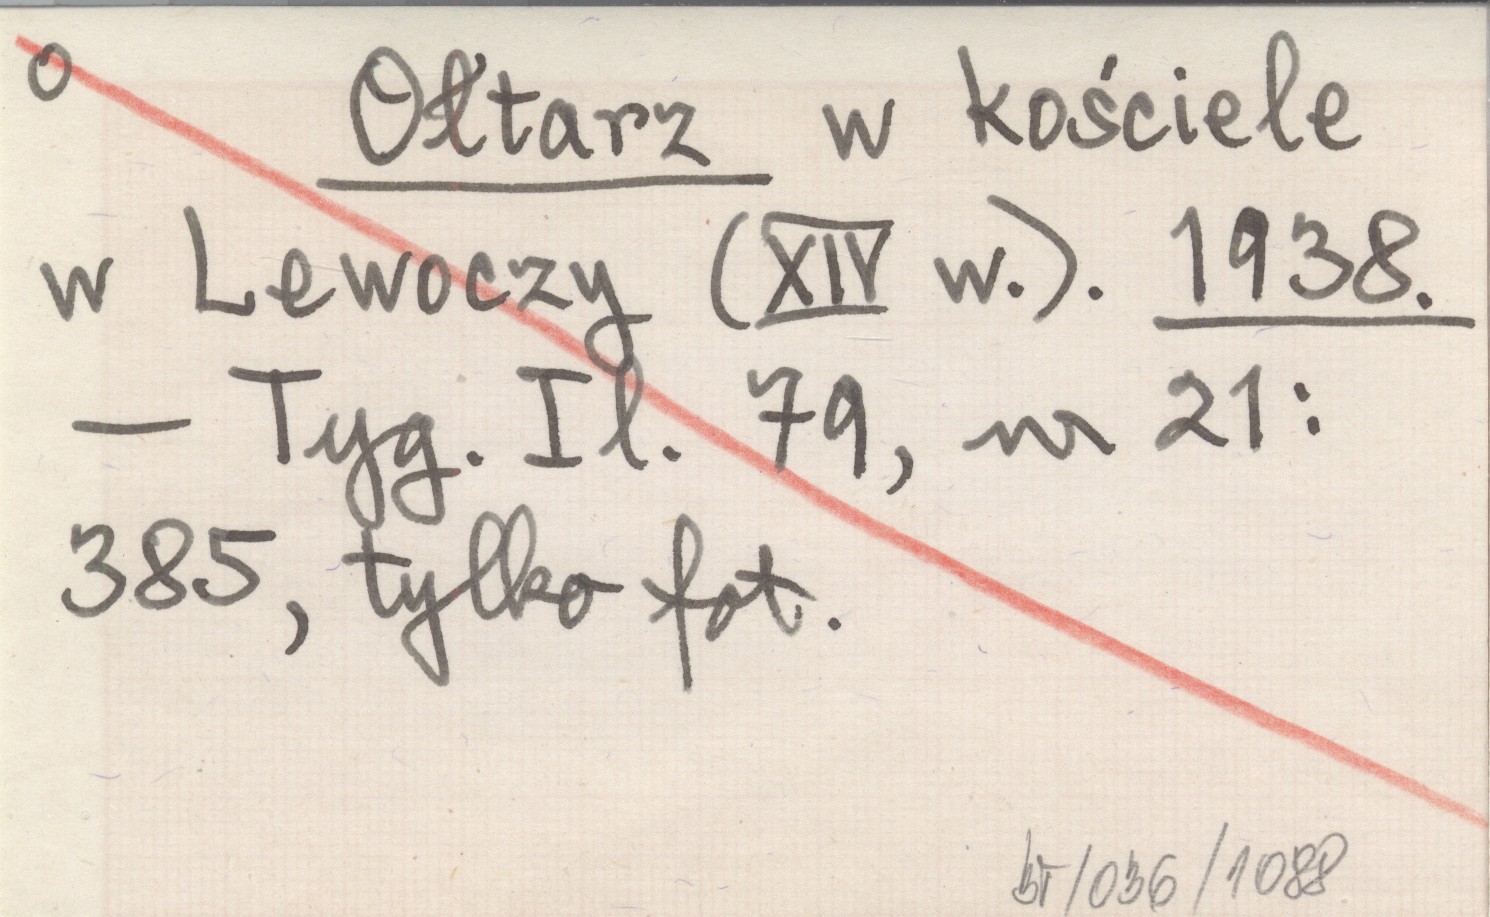 o Ołtarz w kościele
w Lewoczy (XIV w.). 1938.
— Tyg. Il. 79, nr 21:
385, tylko fot.
/036/1088